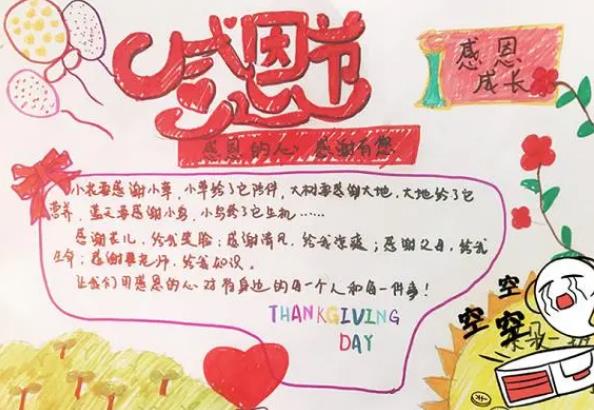 感恩节
感恩的心 感谢有您
感恩
成长
小花要感谢小草，小草给了它陪伴，大树要感谢大地，大地给了它
营养，蓝天要感谢小鸟，小鸟给了它生机……
感谢花儿，给我笑脸；感谢清风，给我凉爽；感谢父母，给我
生命；感谢老师，给我知识。
让我们用感恩的心对待身边的每一个人和每一件事！
THANKGIVING
DAY
空
空
空